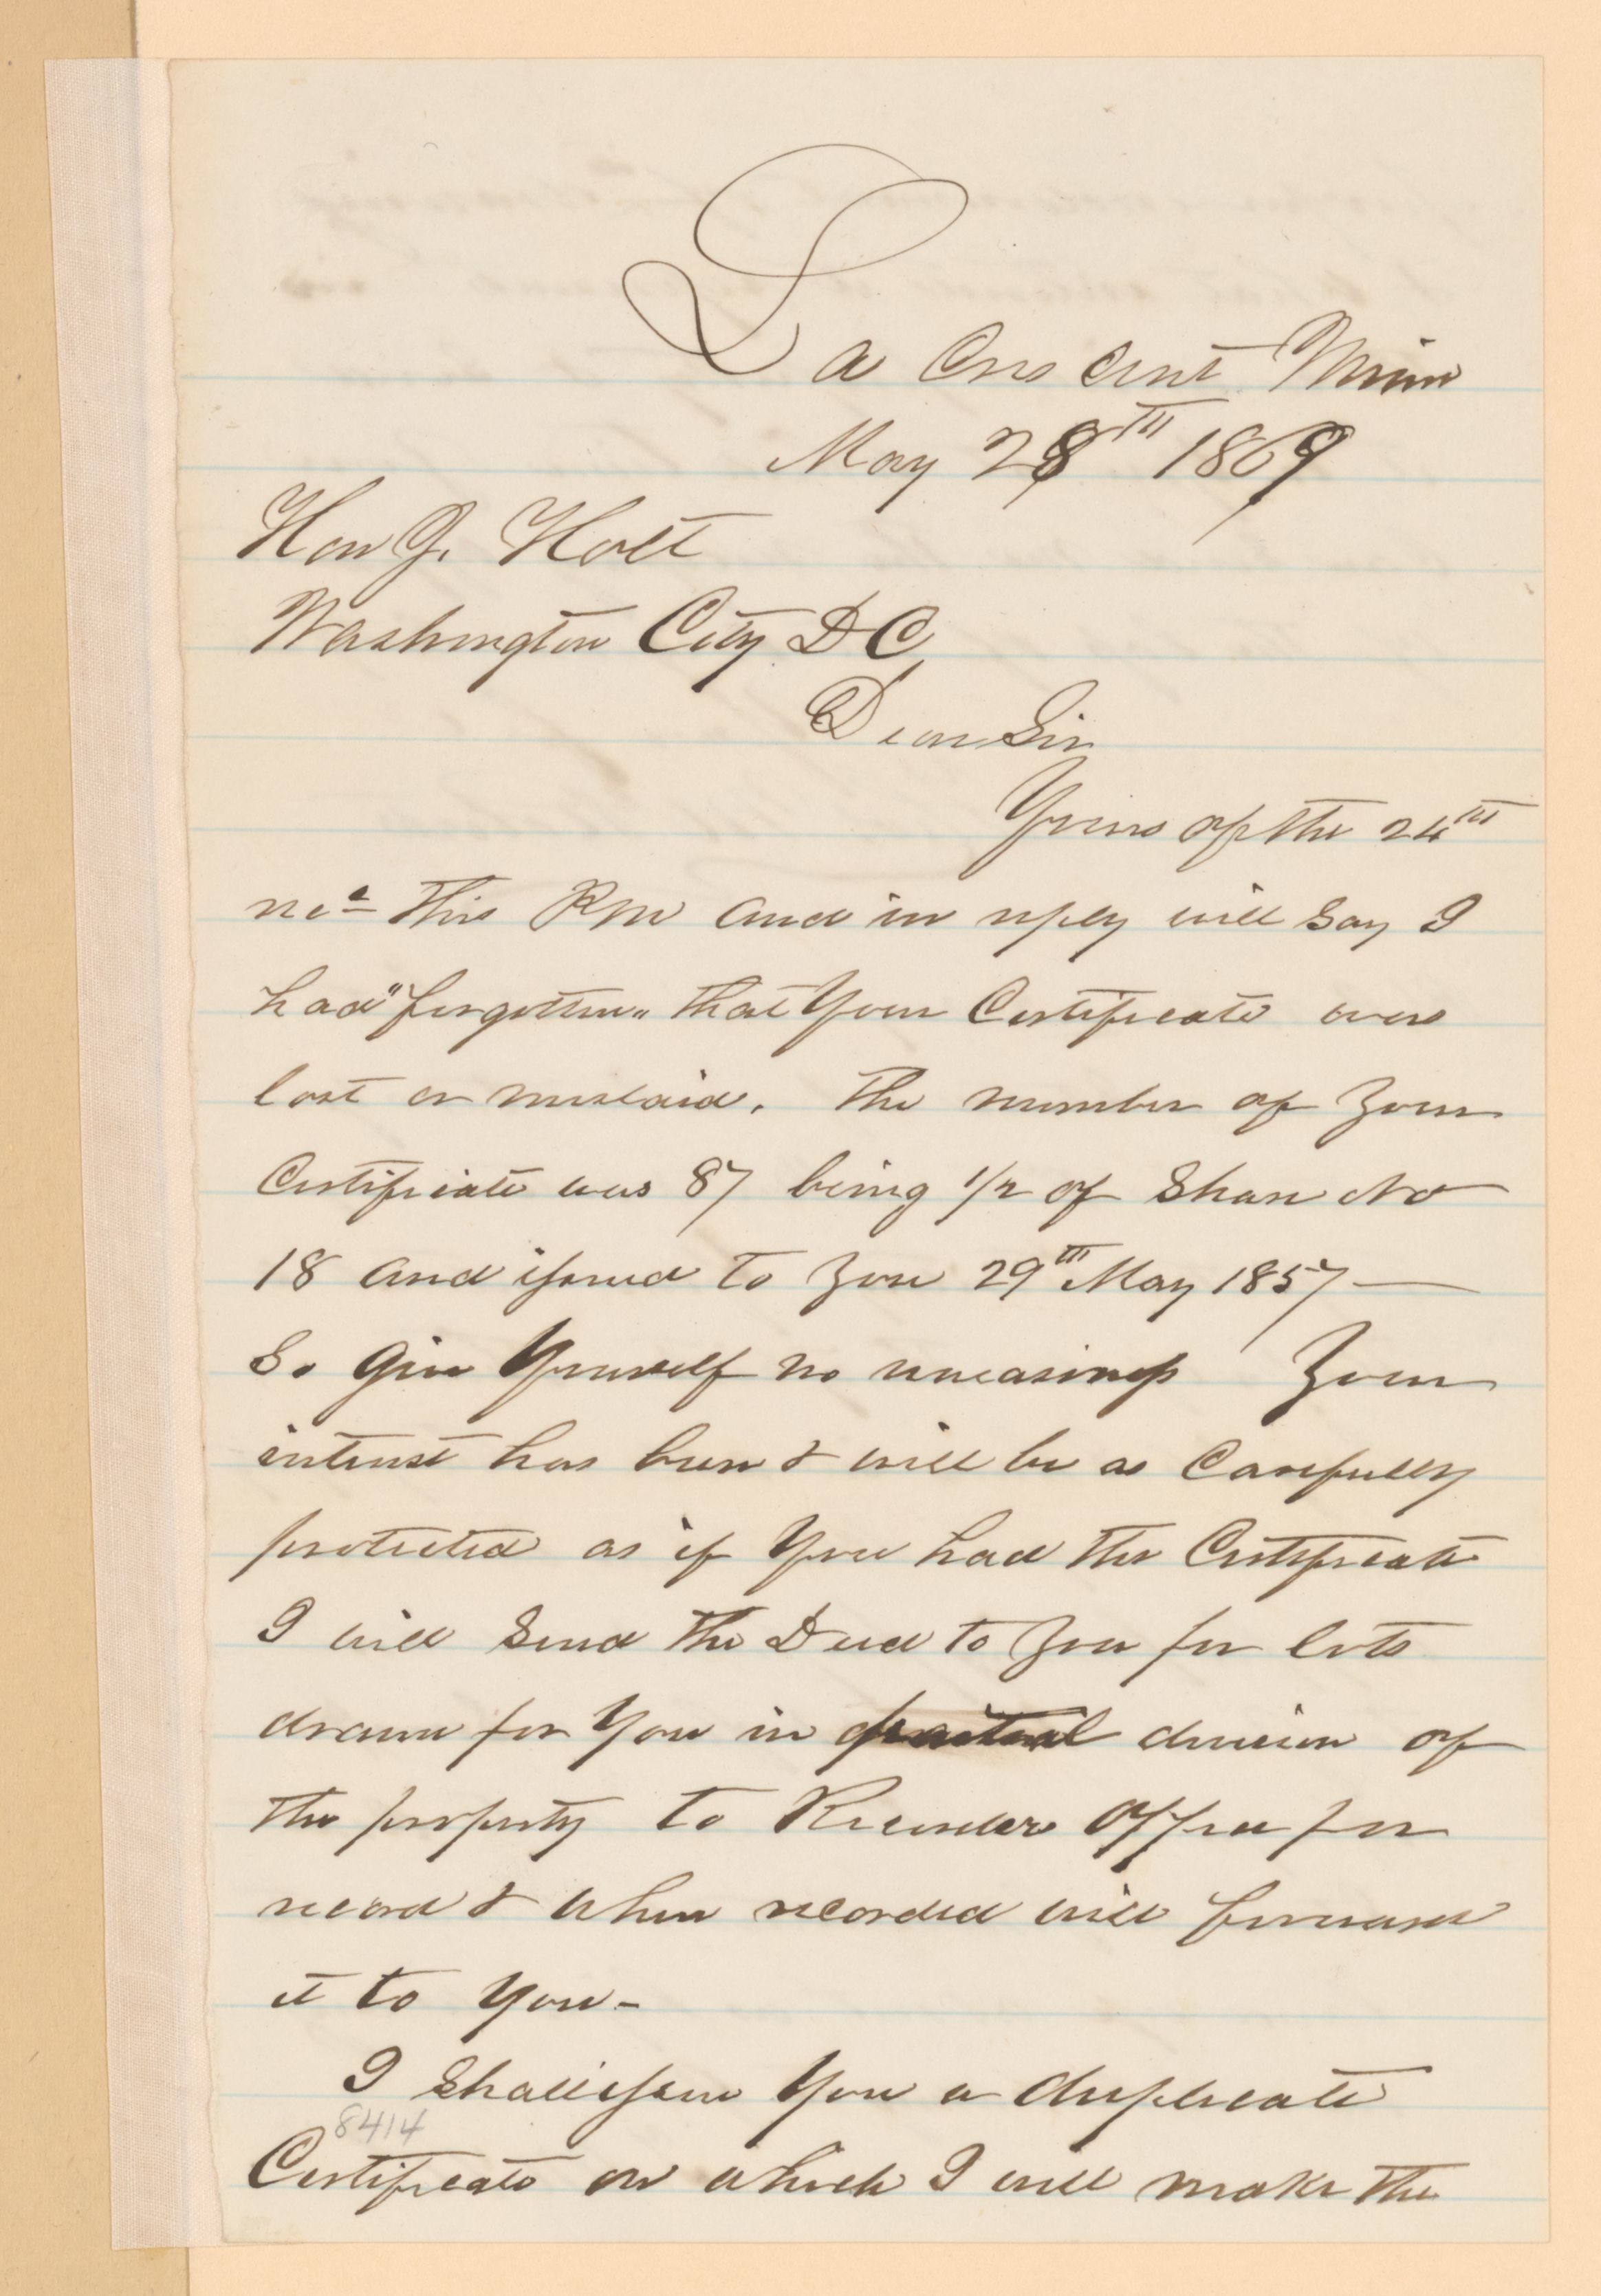 La Crescent Minn
May 28th 1869
Hon J. Holt
Washington City DC
Dear Sir
Yours of the 24th
recd this P.M. and in reply will say I
had "forgotten" that your Certificate was
lost or mislaid. The number of your
Certificate was 87 being 1/2 of Share No
18 and issued to you 29th May 1857 —
So give yourself no uneasiness Your
interest has been & will be as carefully
protected as if you had the Certificate
I will send the Deed to you for lots
drawn for you in division of
the property to Recorders Office for
record & when recorded will forward
it to you -
I shall issue you a duplicate
8414
Certificate on which I will make the